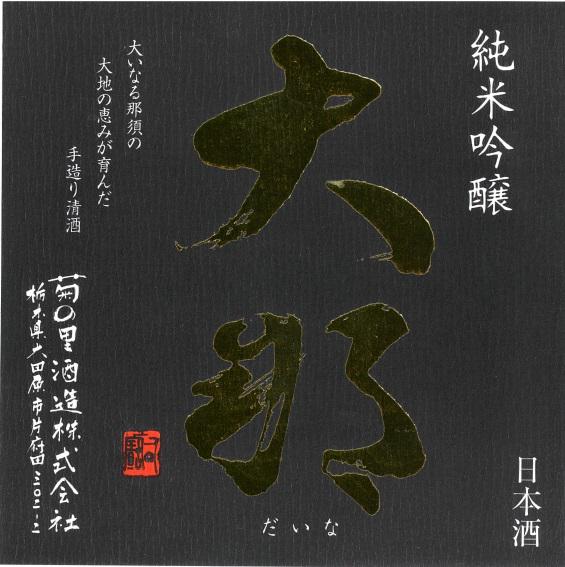 純米吟醸
大那
だいな
大いなる那須の
大地の恵みが育んだ
手造り清酒
菊の里酒造株式会社
栃木県大田原市片府田三〇二-二
日本酒